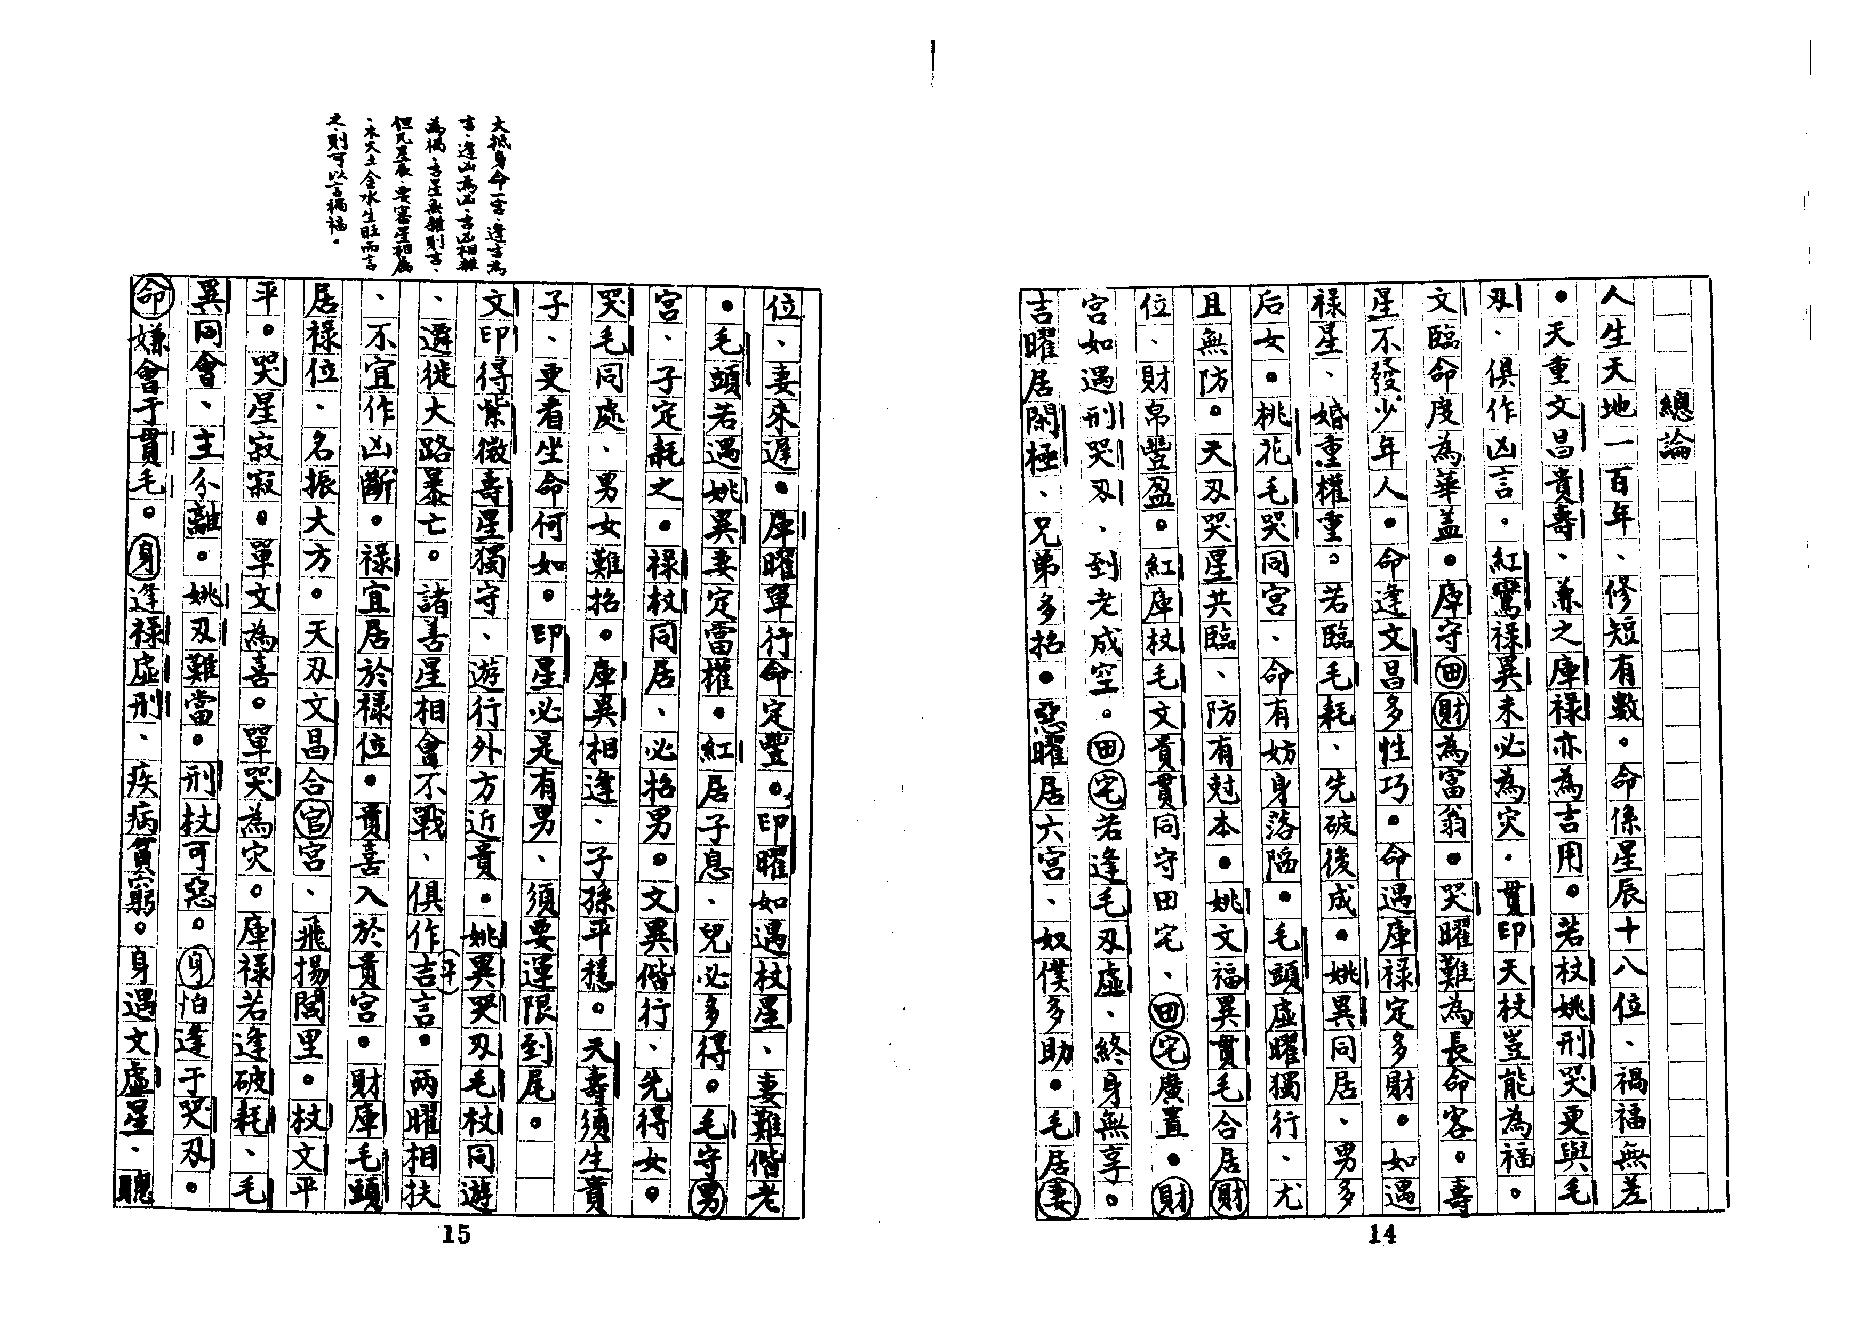 總論
人生天地一百年、修短有數。命係星辰十八位、禍福無差
。天重文昌貴壽、兼之庫祿亦為吉用。若杖姚刑哭更與毛
刃、俱作凶言。紅鸞祿異未必為灾．貫印天杖豈能為福。
文臨命度為華盖。庫守田財為富翁。哭曜難為長命客。壽
星不發少年人。命逢文昌多性巧。命遇庫祿定多財。如遇
祿星、婚重權重。若臨毛耗、先破後成。姚異同居、男多
后女。桃花毛哭同宮、命有妨身落陷。毛頭虛曜獨行、尤
且無防。天刃哭星共臨、防有尅本。姚文福異貫毛合居財
位、財帛豐盈。紅庫杖毛文貴貫同守田宅、田宅廣置。財
宮如遇刑哭刃、到老成空。田宅若逢毛刃虛、終身無享。
吉曜居閑極、兄弟多招。惡曜居六宮、奴僕多助。毛居妻
14
大抵身命一宮、逢吉為
吉、逢凶為凶、吉凶相雜
為禍、吉星無雜則吉、
但凡星辰、要審星相屬
、木火土金水生旺而言
之、則可以言禍福。
位、妻來遲。庫曜單行命定豐。印曜如遇杖星、妻難偕老
。毛頭若遇姚異妻定當權。紅居子息、兒必多得。毛守男
宮、子定耗之。祿杖同居、必招男。文異偕行、先得女。
哭毛同處、男女難招。庫異相逢、子孫平穩。天壽須生貴
子、更看坐命何如。印星必是有男、須要運限到尾。
文印得紫微壽星獨守、遊行外方近貴。姚異哭刃毛杖同遊
、遷徙大路暴亡。諸善星相會不戰、俱作吉言。兩曜相扶
平
、不宜作凶斷。祿宜居於祿位。貫喜入於貫宮。財庫毛頭
居祿位、名振大方。天刃文昌合官宮、飛揚閭里。杖文平
平。哭星寂寂。單文為喜。單哭為灾。庫祿若逢破耗、毛
異同會、主分離。姚刃難當。刑杖可惡。身怕逢于哭刃。
命嫌會于貫毛。身逢祿虛刑、疾病貧窮。身遇文虛星、聰
15